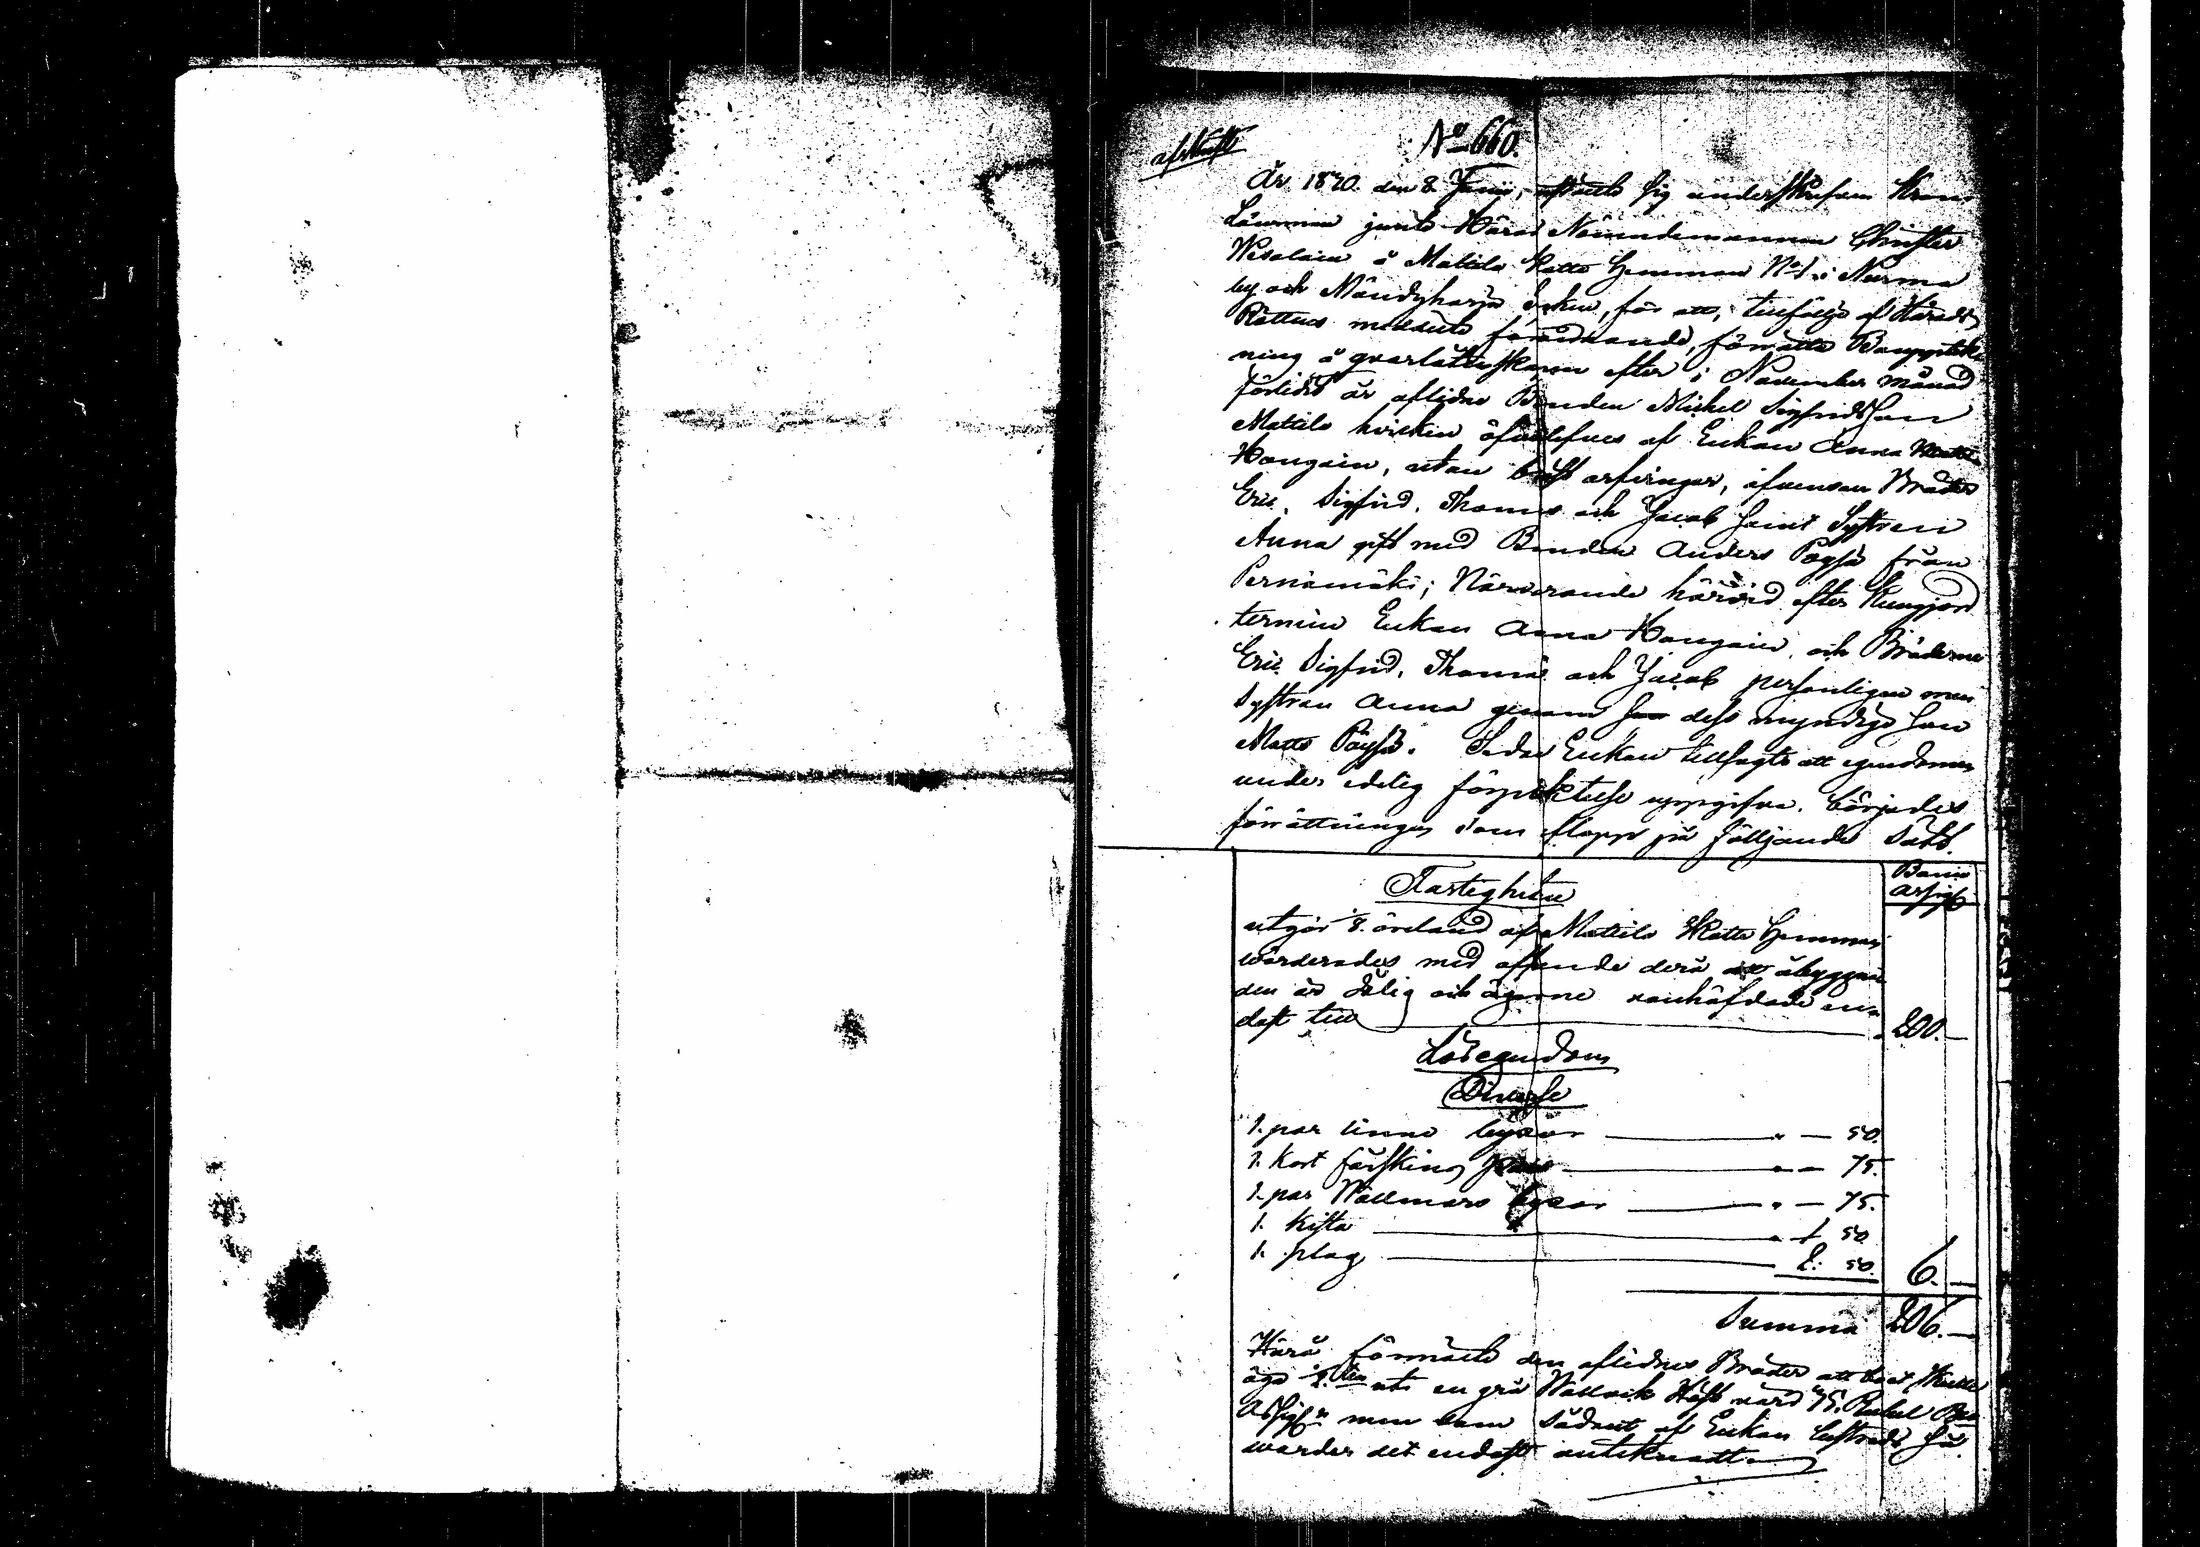 afskrift
No 660.
År 1820. den 8. Junii, sig underskrifven Krono
Länsman jemte Härad Nämndemannen Christer
Wesalain å Mattila Skatte Hemman No 1. i Nurma
by och Mändyharju Socken, för att, tillfölje af Härads
Rättens meddelte förordnande, förrätta Bouppteck-
ning å qvarlåtenskapen efter i November månad
förlidet år aflidne Bonden Michel Sigfridsson
Mattila hvilken öfverlefves af Enkan Anna
Haugain, utan bröst arfvingar, äfvensom Bröder
Eric, Sigfrid, Thomas och Jacob samt Systren
Anna gift med Bonden Anders Pöysä från
Pernämäki; Närvarande härvid efter Kungjord
termin Enkan Anna Haugain, och Bröderne
Eric, Sigfrid, Thomas och Jacob personligen men
Systran Anna genom dess myndige Son
Matts Pöysä. Sedan Enkan tillsagts att egendomen
under edelig förpliktelse uppgifva, börjades
förrättningen som aflopp på följande Sätt.
Banco
Assign
Fastigheten
utgör 8. öreland af Mattila Skatte Hemman
wärderades med afseende derå att åbyggna
den är dålig och ägorne vanhäfdade en-
dast till 200.—
Lösegendom
Diverse
1. par linne byxor " — 50.
1. kort fårskins " — 75.
1. par Wallmars byxor " — 75.
1. Kista " 1. 50
1. plog 2. 50. 6.—
Summa 206.—
Härå förmälte den aflidnes Bröder att boet skulle
äga en grå Wallack Häst värd 75. Rubel Bco
Assign men som sådant af Enkan bestreds så
warder det endast anteknadt.